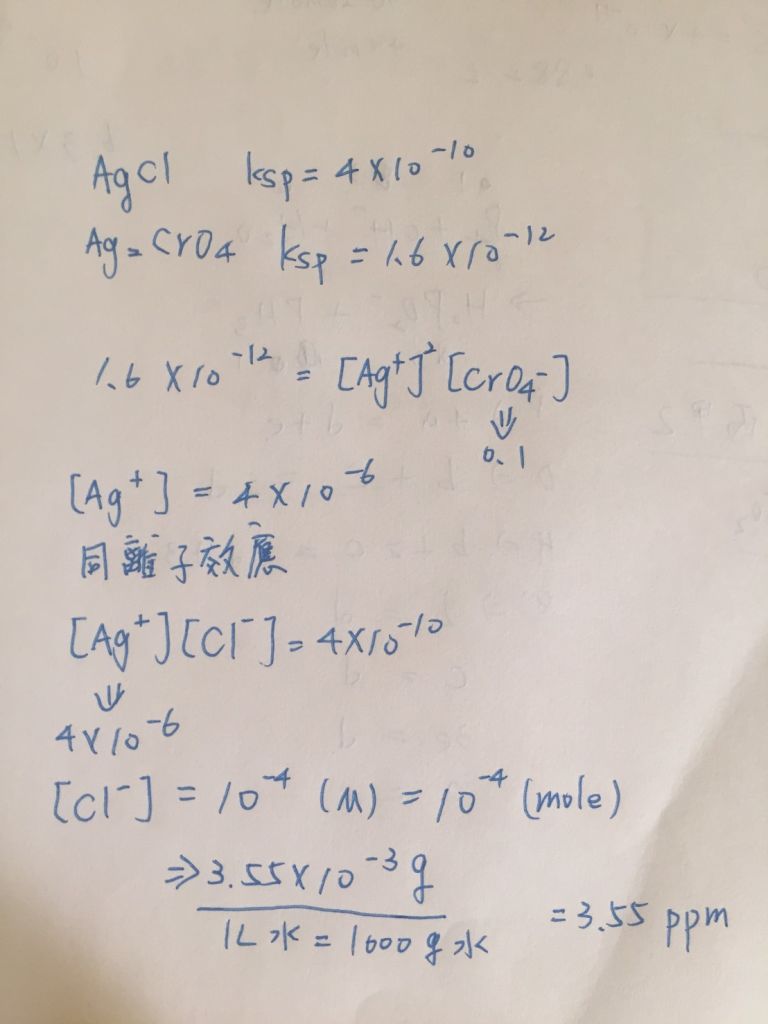 AgCl ksp = 4 × 10⁻¹⁰
Ag₂CrO₄ ksp = 1.6 × 10⁻¹²
1.6 × 10⁻¹² = [Ag⁺]² [CrO₄⁻]
⇓
0.1
[Ag⁺] = 4 × 10⁻⁶
同離子效應
[Ag⁺][Cl⁻] = 4×10⁻¹⁰
⇓
4×10⁻⁶
[Cl⁻] = 10⁻⁴ (M) = 10⁻⁴ (mole)
⇒ 3.55 × 10⁻³ g
1L水 = 1000 g 水 = 3.55 ppm